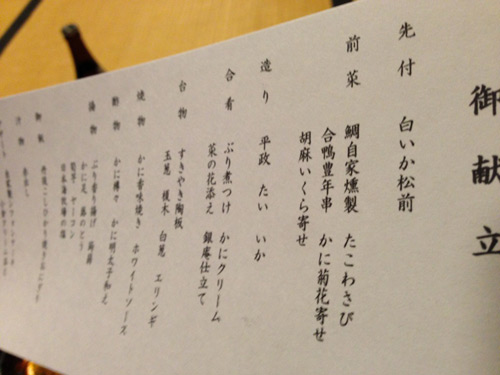 御献立
先付 白いか松前
前菜 鯛自家燻製 たこわさび
合鴨豊年串 かに菊花寄せ
胡麻いくら寄せ
造り 平政 たい いか
合肴 ぶり煮つけ かにクリーム
菜の花添え 銀庵仕立て
台物 すきやき陶板
玉葱 榎木 白葱 エリンギ
焼物 かに香味焼き ホワイトソース
酢物 かに かに明太子和え
揚物 ぶり香り揚げ
かに足
日本海牧場の塩
御飯
汁物